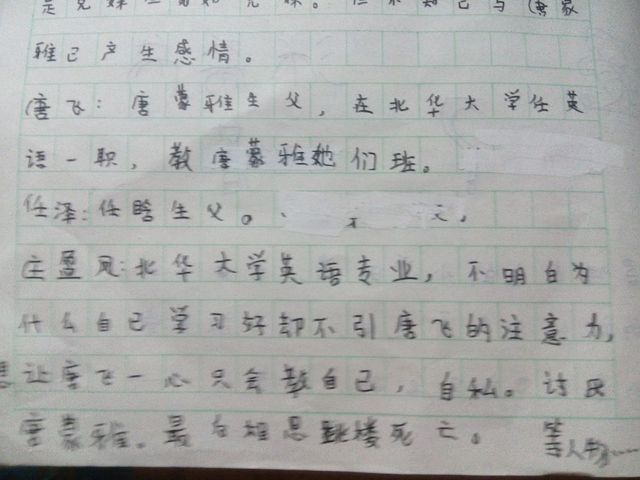 雅已产生感情。
唐飞：唐蒙雅生父，在北华大学任英
语一职，教唐蒙雅她们班。
任泽：任晗生父。
庄盈凤：北华大学英语专业，不明白为
什么自己学习好却不引唐飞的注意力，
想让唐飞一心只会教自己，自私。讨厌
唐蒙雅。最后跳楼死亡。
等人物……